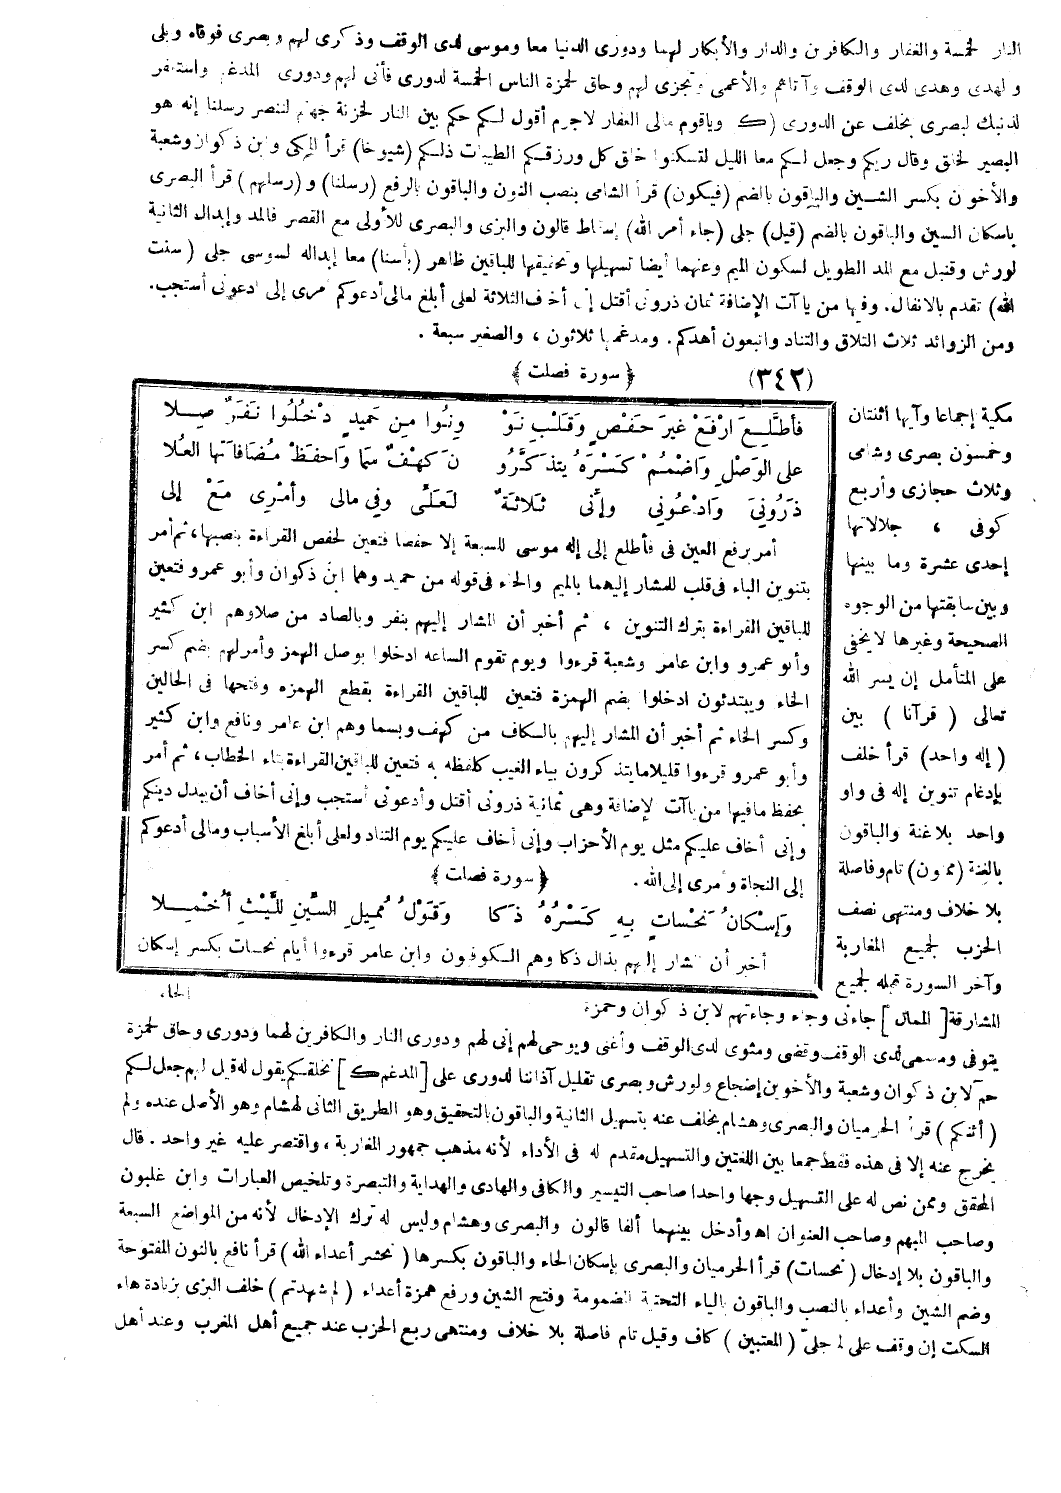 النار لخمسة والغفار والكافرين والدار والأبكار لهما ودورى الدنيا معا وموسى لدى الوقف وذكرى لهم وبصرى فوقاه وبلى
والهدى وهدى لدى الوقف وآتاهم والأعمى وتجزى لهم وحاق لحمزة الناس الخمسة لدورى فأنى لهم ودورى المدغم واستغفر
لذنبك لبصرى بخلف عن الدورى (ك وياقوم مالى الغفار لاجرم أقول لكم حكم بين النار لخزنة جهنم لننصر رسلنا إنه هو
البصير لخالق وقال ربكم وجعل لكم معا الليل لتسكنوا خالق كل ورزقكم الطيبات ذلكم (شيوخا) قرأ المكى وابن ذكوان وشعبة
والأخوان بكسر الشين والباقون بالضم (فيكون) قرأ الشامى بنصب النون والباقون بالرفع (رسلنا) و (رسلهم) قرأ البصرى
باسكان السين والباقون بالضم (قيل) جلى (جاء أمر الله) إسقاط قالون والبزى والبصرى للأولى مع القصر فالمد وإبدال الثانية
لورش وقنبل مع المد الطويل لسكون الميم وعنهما أيضا تسهيلها وتحقيقها للباقين ظاهر (بأسنا) معا إبداله لسوسى جلى (سنت
الله) تقدم بالانفال. وفيها من ياآت الإضافة ثمان ذرونى أقتل إنى أخاف الثلاثة لعلى أبلغ مالى أدعوكم أمرى إلى ادعونى أستجب.
ومن الزوائد ثلاث التلاق والتناد واتبعون أهدكم. ومدغمها ثلاثون ، والصغير سبعة .
(٣٤٢) ﴿ سورة فصلت ﴾
مكية إجماعا وآيها اثنتان
وخمسون بصرى وشامى
وثلاث حجازى وأربع
كوفى ، جلالاتها
إحدى عشرة وما بينها
وبين سابقتها من الوجوه
الصحيحة وغيرها لا يخفى
على المتأمل إن يسر الله
تعالى ( قرآنا ) بين
(إله واحد) قرأ خلف
بإدغام تنوين إله فى واو
واحد بلا غنة والباقون
بالغنة (ممنون) تام وفاصلة
بلا خلاف ومنتهى نصف
الحزب لجميع المغاربة
وآخر السورة قبله لجميع
فأطلع ارفع غير حفص وقلب نو ونوا من حميد دخلوا نفر صلا
على الوصل واضمم كسره يتذكرو ن كهف سما واحفظ مضافاتها العلا
ذرونى وادعونى وإنى ثلاثة لعلى وفى مالى وأمرى مع إلى
أمر برفع العين فى فأطلع إلى إله موسى للسبعة إلا حفصا فتعين لحفص القراءة بنصبها، ثم أمر
بتنوين الباء فى قلب للمشار إليهما بالميم والحاء فى قوله من حميد وهما ابن ذكوان وأبو عمرو فتعين
للباقين القراءة بترك التنوين ، ثم أخبر أن المشار إليهم بنفر وبالصاد من صلاوهم ابن كثير
وأبو عمرو وابن عامر وشعبة قرءوا ويوم تقوم الساعه ادخلوا بوصل الهمز وأمر لهم بضم كسر
الخاء ويبتدئون ادخلوا بضم الهمزة فتعين للباقين القراءة بقطع الهمزه وفتحها فى الحالين
وكسر الخاء ثم أخبر أن المشار إليهم بالكاف من كهف وبسما وهم ابن عامر ونافع وابن كثير
وأبو عمرو قرءوا قليلا ما يتذكرون بياء الغيب كلفظه به فتعين للباقين القراءة بتاء الخطاب، ثم أمر
بحفظ ما فيها من ياآت الإضافة وهى ثمانية ذرونى أقتل وأدعونى أستجب وإنى أخاف أن يبدل دينكم
وإنى أخاف عليكم مثل يوم الأحزاب وإنى أخاف عليكم يوم التناد ولعلى أبلغ الأسباب ومالى أدعوكم
إلى النجاة وأمرى إلى الله.
﴿ سورة فصلت ﴾
وإسكان نحسات به كسره ذكا وقول مميل السين لليث أخملا
أخبر أن المشار إليهم بذال ذكا وهم الكوفيون وابن عامر قرءوا أيام نحسات بكسر إسكان
الحاء،
المشارقة [الممال] جاءنى وجاء وجاءتهم لابن ذكوان وحمزة
يتوفى ومسمى لدى الوقف وقضى ومثوى لدى الوقف وأغنى ويوحى لهم إنى لهم ودورى النار والكافرين لهما ودورى وحاق لحمزة
حم لابن ذكوان وشعبة والأخوين إضجاع ولورش وبصرى تقليل آذاننا لدورى على [المدغم ك] نخلقكم يقول له قيل لهم جعل لكم
( أئنكم ) قرأ الحرميان والبصرى وهشام بخلف عنه بتسهيل الثانية والباقون بالتحقيق وهو الطريق الثانى لهشام وهو الأصل عنده ولم
يخرج عنه إلا فى هذه فقط جمعا بين اللغتين والتسهيل مقدم له فى الأداء لأنه مذهب جمهور المغاربة ، واقتصر عليه غير واحد . قال
المحقق وممن نص له على التسهيل وجها واحدا صاحب التيسير والكافى والهادى والهداية والتبصرة وتلخيص العبارات وابن غلبون
وصاحب المبهج وصاحب العنوان اه وأدخل بينهما ألفا قالون والبصرى وهشام وليس له ترك الإدخال لأنه من المواضع السبعة
والباقون بلا إدخال ( نحسات) قرأ الحرميان والبصرى بإسكان الحاء والباقون بكسرها ( نحشر أعداء الله ) قرأ نافع بالنون المفتوحة
وضم الشين وأعداء بالنصب والباقون بالياء التحتية المضمومة وفتح الشين ورفع همزة أعداء ( لم شهدتم ) خلف البزى بزيادة هاء
السكت إن وقف على لم جلىّ ( المعتبين ) كاف وقيل تام فاصلة بلا خلاف ومنتهى ربع الحزب عند جميع أهل المغرب وعند أهل